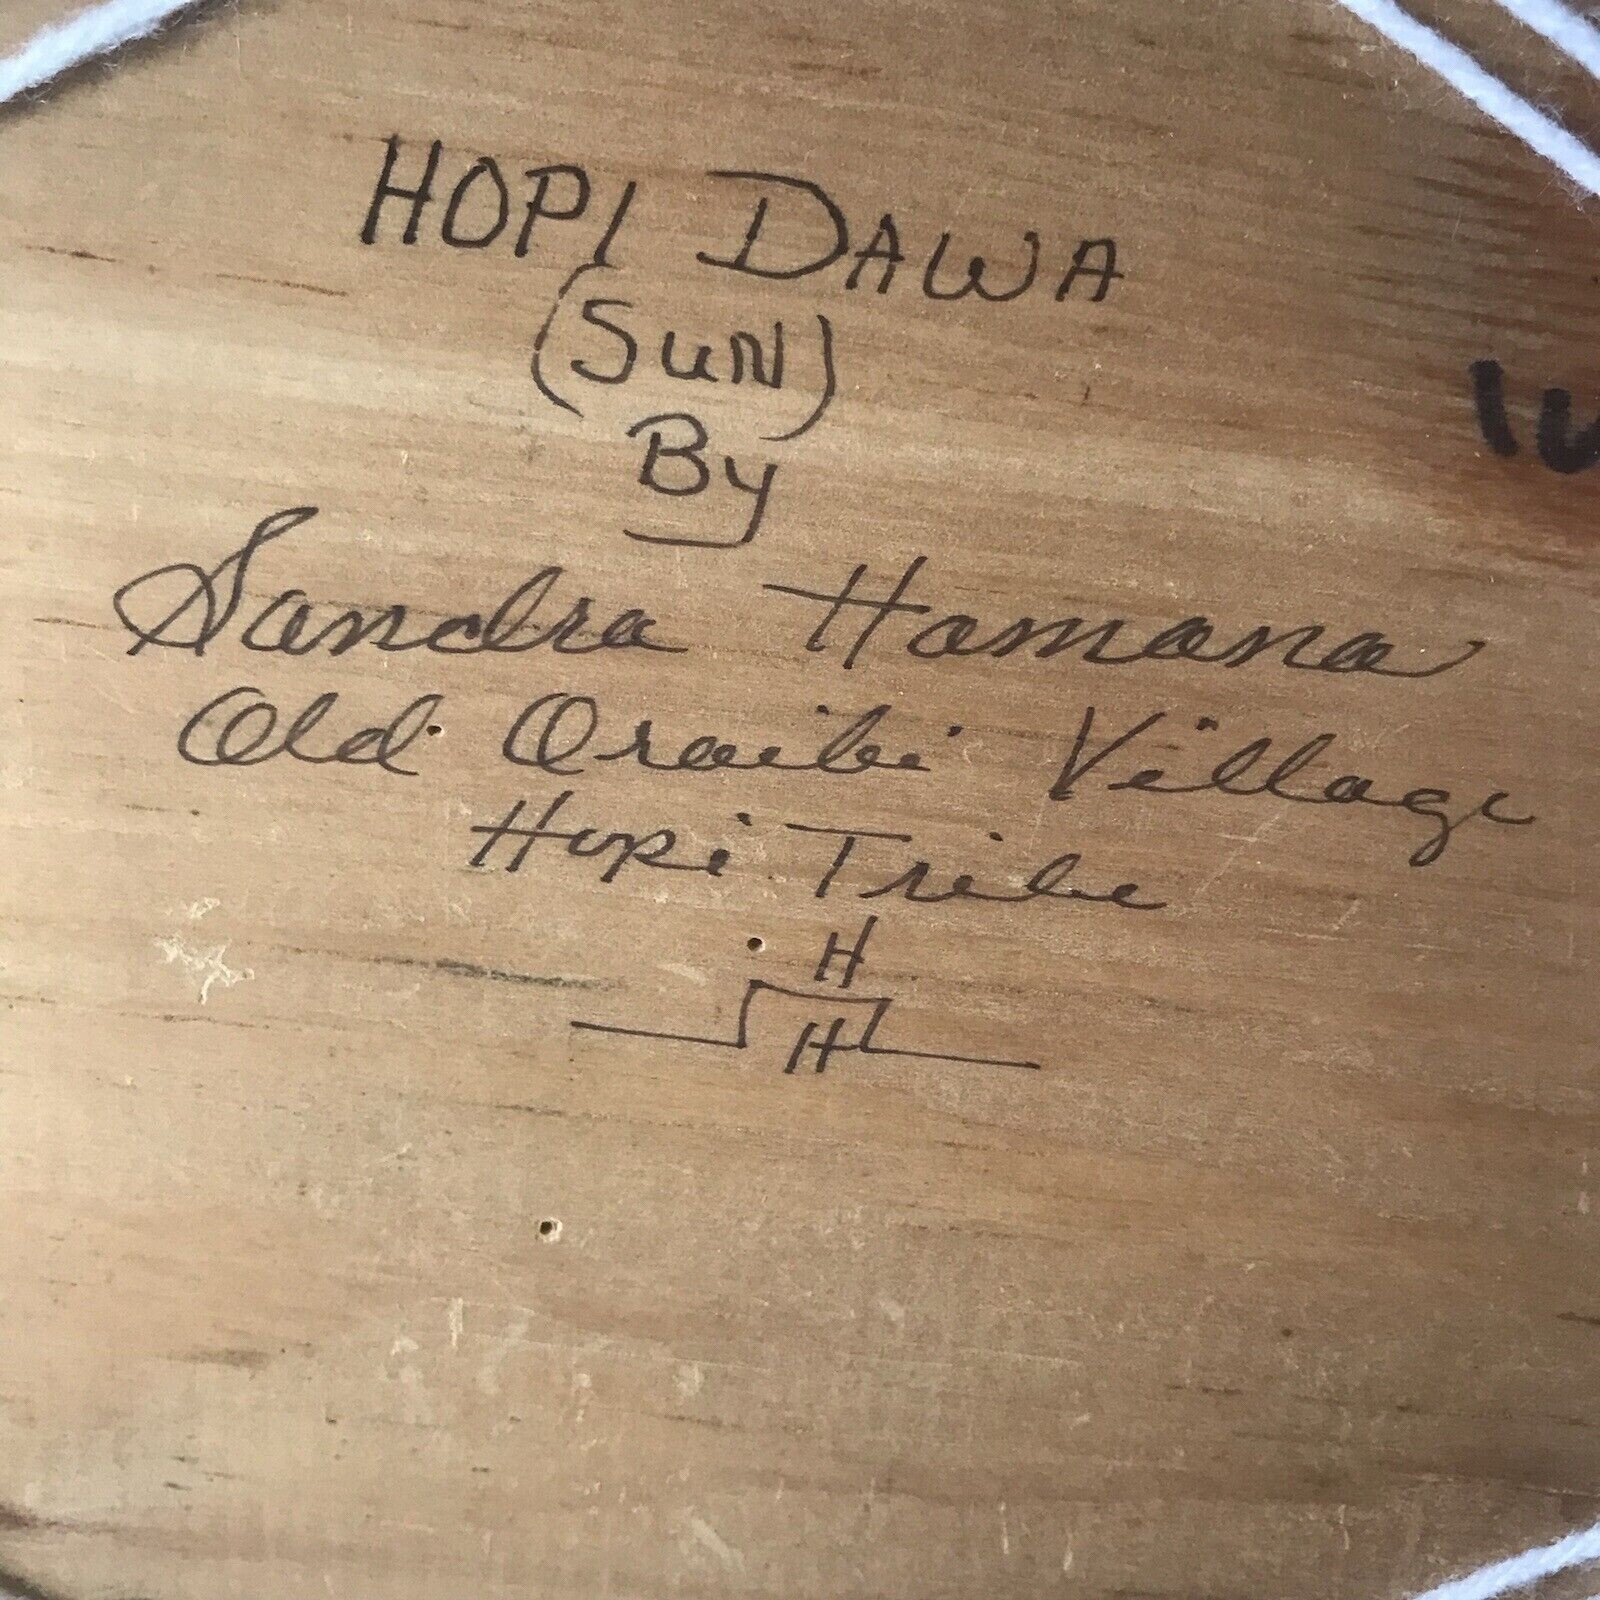 HOPI DAWA
(SUN)
By
Sandra Hamana
Old Oraibi Village
Hopi Tribe
H
H